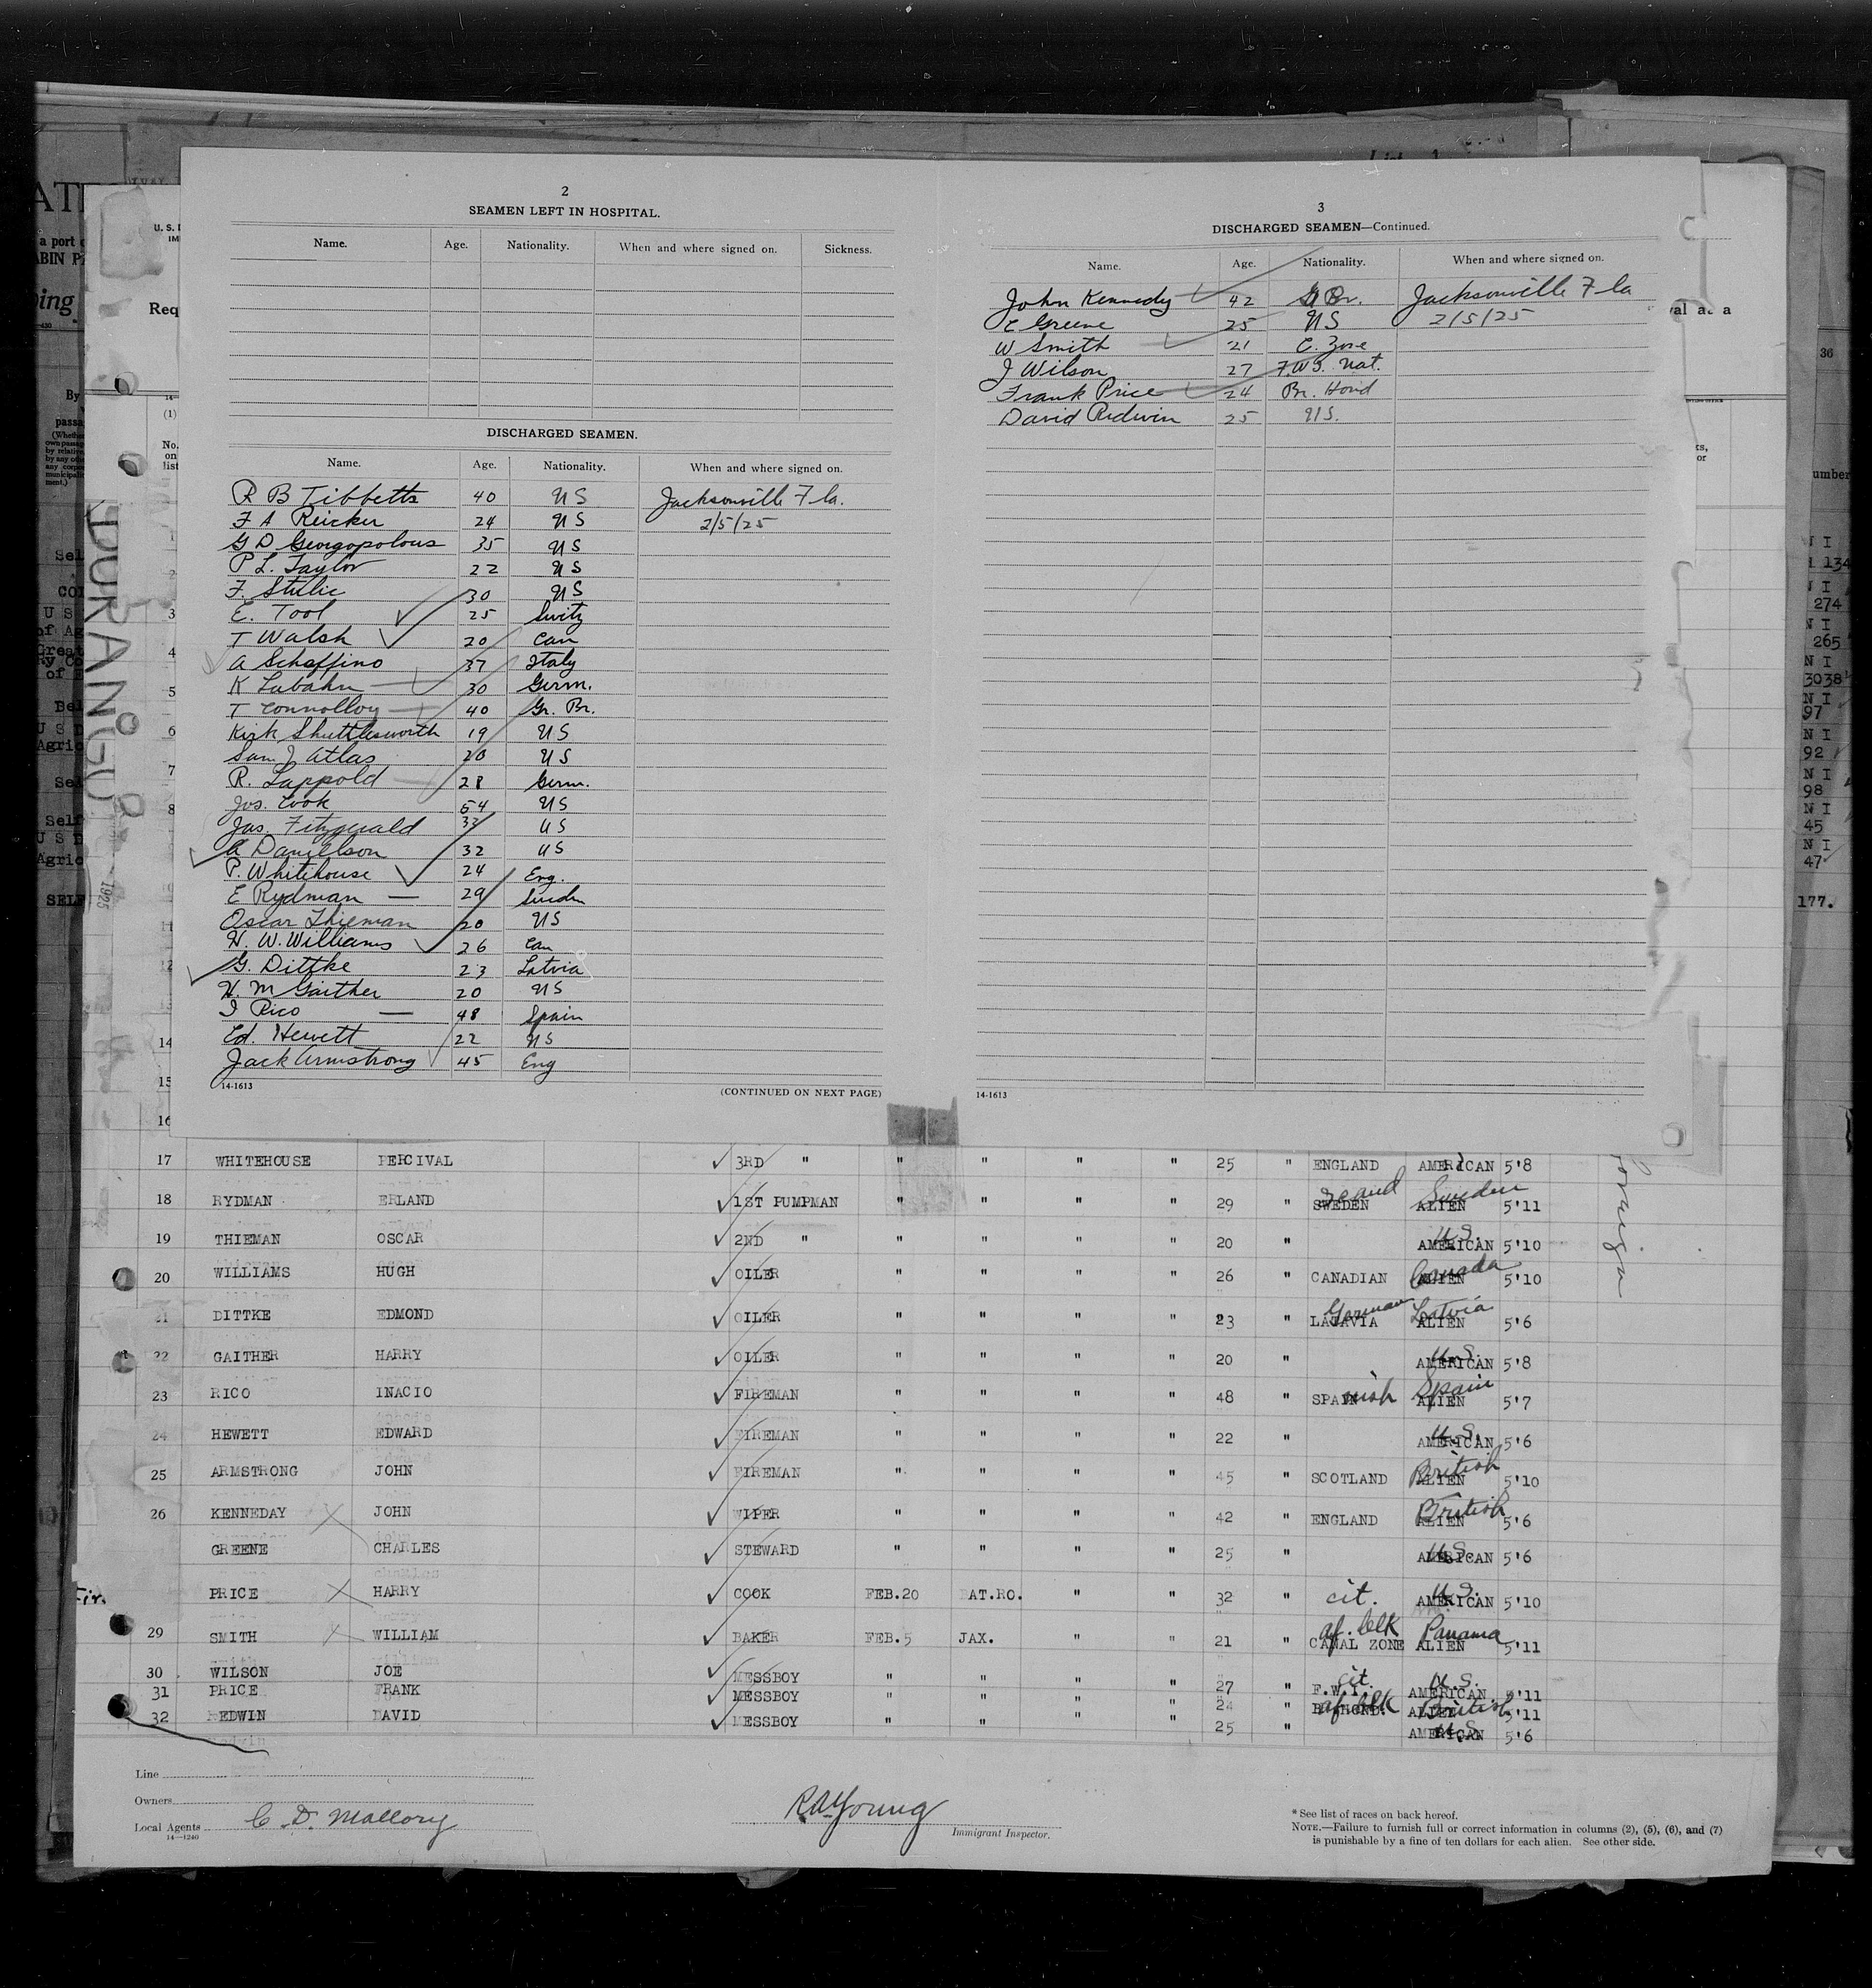 2
SEAMEN LEFT IN HOSPITAL.
Name. Age. Nationality. When and where signed on. Sickness.
DISCHARGED SEAMEN.
Name. Age. Nationality. When and where signed on.
R B Tibbetts 40 US Jacksonville Fla.
F A Reicker 24 US 2/5/25
G D Georgopolous 35 US
P L. Taylor 22 US
F. Stulic 30 US
E. Tool 25 Switz
T Walsh 20 Can
A Schaffino 37 Italy
K Labahn 30 Germ.
T Connolloy 40 Gr. Br.
Kirk Shuttlesworth 19 US
Sam J Atlas 20 US
R. Lappold 28 Germ.
Jos. Cook 54 US
Jas. Fitzgerald 33 US
A Danellson 32 US
P. Whitehouse 24 Eng.
E Rydman 29 Sweden
Oscar Thieman 20 US
H. W. Williams 26 Can
G. Dittke 23 Latvia
H. M Gaither 20 US
I Rico 48 Spain
Ed. Hewett 22 US
Jack Armstrong 45 Eng
14-1613 (CONTINUED ON NEXT PAGE)
3
DISCHARGED SEAMEN—Continued.
Name. Age. Nationality. When and where signed on.
John Kennedy 42 Br. Jacksonville Fla
C Greene 25 US 2/5/25
W Smith 21 C. Zone
J Wilson 27 F.W.I. Nat.
Frank Price 24 Br. Hond
David Redwin 25 US.
14-1613
DURANGO
1925
17 WHITEHOUSE PERCIVAL 3RD " " " " " 25 " ENGLAND AMERICAN 5'8
18 RYDMAN ERLAND 1ST PUMPMAN " " " " 29 " SWEDEN Scand ALIEN Sweden 5'11
19 THIEMAN OSCAR 2ND " " " " " 20 " AMERICAN U.S. 5'10
20 WILLIAMS HUGH OILER " " " " 26 " CANADIAN ALIEN Canada 5'10
21 DITTKE EDMOND OILER " " " " 23 " LATAVIA German ALIEN Latvia 5'6
22 GAITHER HARRY OILER " " " " 20 " AMERICAN U.S. 5'8
23 RICO INACIO FIREMAN " " " " 48 " SPAIN nish ALIEN Spain 5'7
24 HEWETT EDWARD FIREMAN " " " " 22 " AMERICAN U.S. 5'6
25 ARMSTRONG JOHN FIREMAN " " " " 45 " SCOTLAND ALIEN British 5'10
26 KENNEDAY JOHN WIPER " " " " 42 " ENGLAND ALIEN British 5'6
GREENE CHARLES STEWARD " " " " 25 " AMERICAN U.S. 5'6
PRICE HARRY COOK FEB.20 BAT.RO. " " 32 " cit. AMERICAN U.S. 5'10
29 SMITH WILLIAM BAKER FEB.5 JAX. " " 21 " CANAL ZONE af. blk ALIEN Panama 5'11
30 WILSON JOE MESSBOY " " " " 27 " F.W.I. cit. AMERICAN U.S. 5'11
31 PRICE FRANK MESSBOY " " " " 24 " af blk ALIEN British 5'11
32 REDWIN DAVID MESSBOY " " " " 25 " AMERICAN U.S. 5'6
Line
Owners
Local Agents C. D. Mallory
14—1240
R A Young
Immigrant Inspector.
* See list of races on back hereof.
NOTE.—Failure to furnish full or correct information in columns (2), (5), (6), and (7)
is punishable by a fine of ten dollars for each alien. See other side.